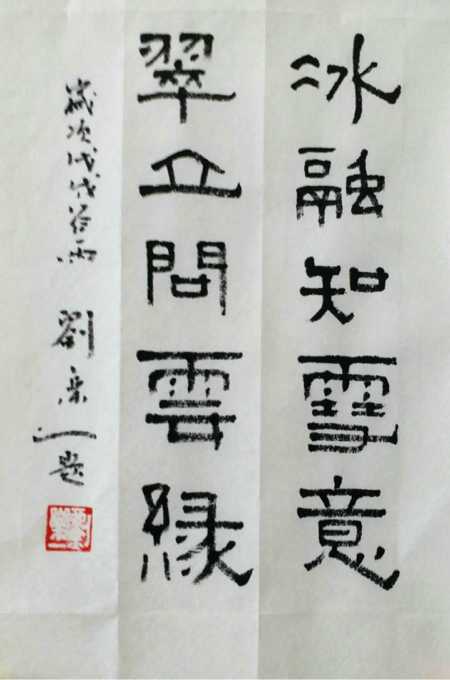 冰融知雪意
翠立問雲緣
歲次戊戌谷雨 劉一題